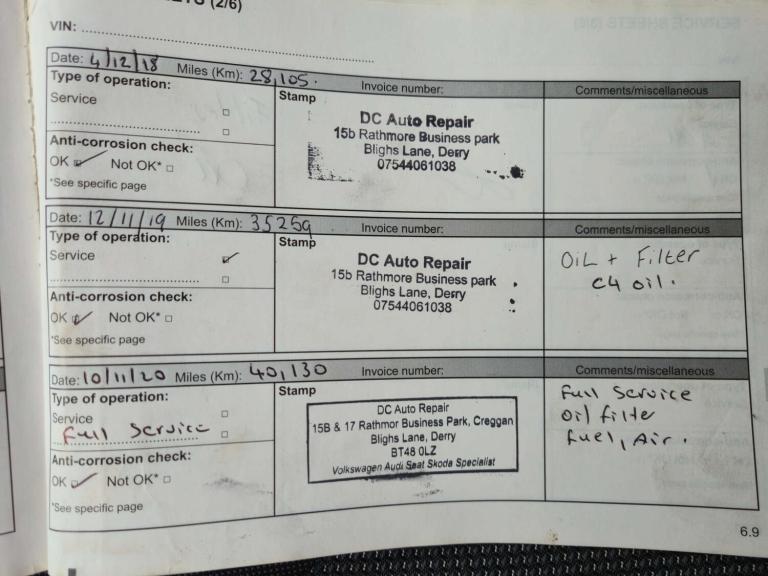 (2/6)
VIN:
Date: 4/12/18 Miles (Km): 28,105. Invoice number: Comments/miscellaneous
Type of operation:
Service
Anti-corrosion check:
OK Not OK*
*See specific page
Stamp
DC Auto Repair
15b Rathmore Business park
Blighs Lane, Derry
07544061038
Date: 12/11/19 Miles (Km): 35259 Invoice number: Comments/miscellaneous
Type of operation:
Service
Anti-corrosion check:
OK Not OK*
*See specific page
Stamp
DC Auto Repair
15b Rathmore Business park
Blighs Lane, Derry
07544061038
OiL + Filter
C4 oil.
Date: 10/11/20 Miles (Km): 40,130 Invoice number: Comments/miscellaneous
Type of operation:
Service
Full Service
Anti-corrosion check:
OK Not OK*
*See specific page
Stamp
DC Auto Repair
15B & 17 Rathmor Business Park, Creggan
Blighs Lane, Derry
BT48 0LZ
Volkswagen Audi Seat Skoda Specialist
Full Service
oil filter
fuel, Air.
6.9